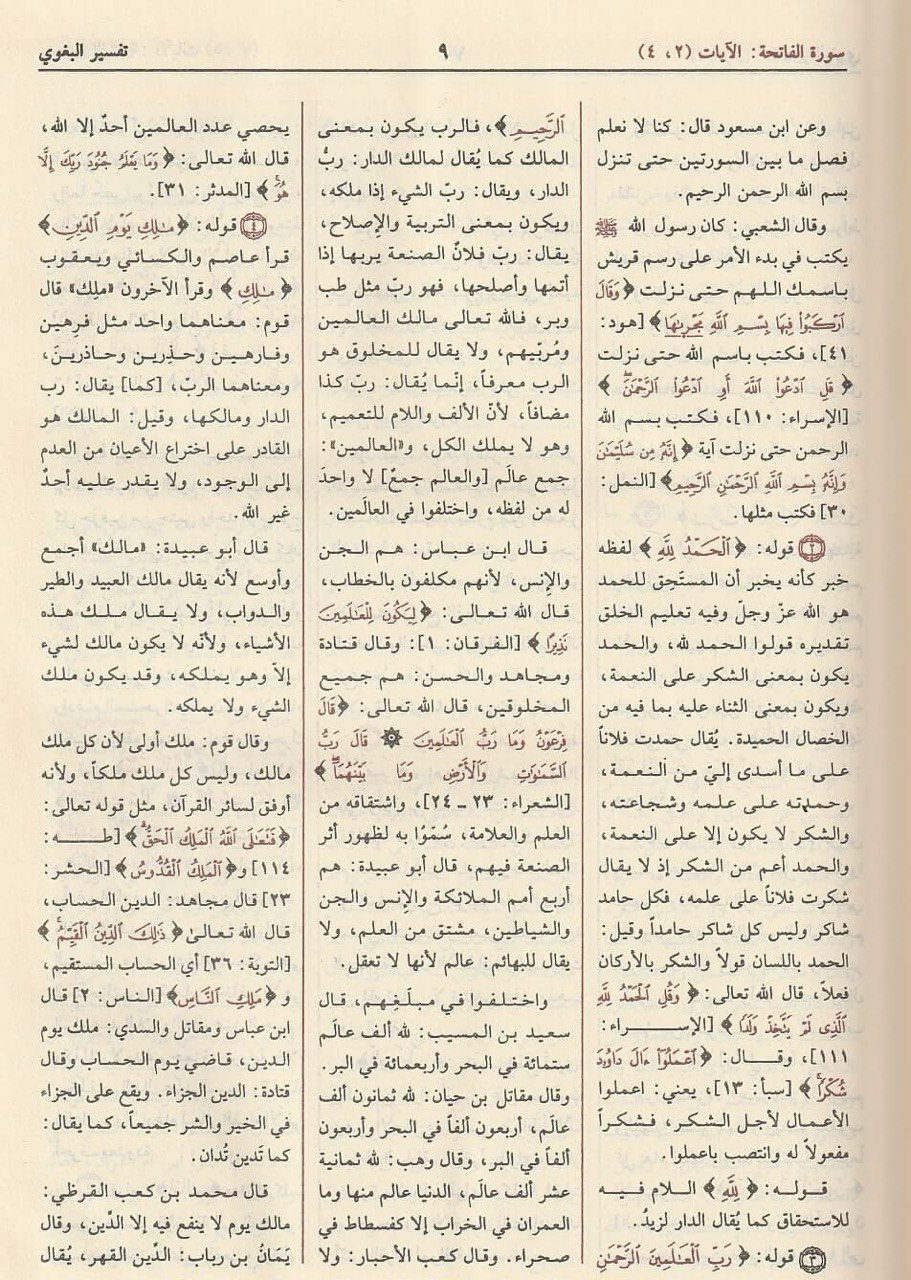 سورة الفاتحة: الآيات (٢، ٤)
٩
تفسير البغوي
وعن ابن مسعود قال: كنا لا نعلم
فصل ما بين السورتين حتى تنزل
بسم الله الرحمن الرحيم.
وقال الشعبي: كان رسول الله ﷺ
يكتب في بدء الأمر على رسم قريش
باسمك اللهم حتى نزلت ﴿وَقَالَ
ٱرْكَبُوا۟ فِيهَا بِسْمِ ٱللَّهِ مَجْر۪ىٰهَا﴾ [هود:
٤١]، فكتب باسم الله حتى نزلت
﴿قُلِ ٱدْعُوا۟ ٱللَّهَ أَوِ ٱدْعُوا۟ ٱلرَّحْمَٰنَ﴾
[الإسراء: ١١٠]، فكتب بسم الله
الرحمن حتى نزلت آية ﴿إِنَّهُۥ مِن سُلَيْمَٰنَ
وَإِنَّهُۥ بِسْمِ ٱللَّهِ ٱلرَّحْمَٰنِ ٱلرَّحِيمِ﴾ [النمل:
٣٠] فكتب مثلها.
(٢) قوله: ﴿ٱلْحَمْدُ لِلَّهِ﴾ لفظه
خبر كأنه يخبر أن المستَحِق للحمد
هو الله عزّ وجلّ وفيه تعليم الخلق
تقديره قولوا الحمد لله، والحمد
يكون بمعنى الشكر على النعمة،
ويكون بمعنى الثناء عليه بما فيه من
الخصال الحميدة. يُقال حمدت فلاناً
على ما أسدى إليّ من النعمة،
وحمدته على علمه وشجاعته،
والشكر لا يكون إلا على النعمة،
والحمد أعم من الشكر إذ لا يقال
شكرت فلاناً على علمه، فكل حامد
شاكر وليس كل شاكر حامداً وقيل:
الحمد باللسان قولاً والشكر بالأركان
فعلاً، قال الله تعالى: ﴿وَقُلِ ٱلْحَمْدُ لِلَّهِ
ٱلَّذِى لَمْ يَتَّخِذْ وَلَدًا﴾ [الإسـراء:
١١١]، وقـال: ﴿ٱعْمَلُوٓا۟ ءَالَ دَاوُۥدَ
شُكْرًا﴾ [سبأ: ١٣]، يعني: اعملوا
الأعمال لأجل الشكر، فشكراً
مفعولاً له وانتصب باعملوا.
قوله: ﴿لِلَّهِ﴾ اللام فيه
للاستحقاق كما يُقال الدار لزيدُ.
(٣) قوله: ﴿رَبِّ ٱلْعَٰلَمِينَ ٱلرَّحْمَٰنِ
ٱلرَّحِيمِ﴾، فالرب يكون بمعنى
المالك كما يُقال لمالك الدار: ربُّ
الدار، ويقال: ربّ الشيء إذا ملكه،
ويكون بمعنى التربية والإصلاح،
يقال: ربّ فلانٌ الصنعة يربها إذا
أتمها وأصلحها، فهو ربّ مثل طب
وبر، فالله تعالى مالك العالمين
ومُربّيهم، ولا يقال للمخلوق هو
الرب معرفاً، إنّما يُقال: ربّ كذا
مضافاً، لأنّ الألف واللام للتعميم،
وهو لا يملك الكل، و«العالمين»:
جمع عالَم [والعالم جمعٌ] لا واحدَ
له من لفظه، واختلفوا في العالَمين.
قال ابن عباس: هم الجن
والإنس، لأنهم مكلفون بالخطاب،
قال الله تعالى: ﴿لِيَكُونَ لِلْعَٰلَمِينَ
نَذِيرًا﴾ [الفرقان: ١]: وقال قتادة
ومجاهد والحسن: هم جميع
المخلوقين، قال الله تعالى: ﴿قَالَ
فِرْعَوْنُ وَمَا رَبُّ ٱلْعَٰلَمِينَ ۞ قَالَ رَبُّ
ٱلسَّمَٰوَٰتِ وَٱلْأَرْضِ وَمَا بَيْنَهُمَآ﴾
[الشعراء: ٢٣ ـ ٢٤]، واشتقاقه من
العلم والعلامة، سُمّوا به لظهور أثر
الصنعة فيهم، قال أبو عبيدة: هم
أربع أمم الملائكة والإنس والجن
والشياطين، مشتق من العلم، ولا
يقال للبهائم: عالم لأنها لا تعقل.
واختلفوا في مبلَغِهم، قال
سعيد بن المسيب: لله ألف عالَم
ستمائة في البحر وأربعمائة في البر.
وقال مقاتل بن حيان: لله ثمانون ألف
عالَم، أربعون ألفاً في البحر وأربعون
ألفاً في البر، وقال وهب: لله ثمانية
عشر ألف عالَم، الدنيا عالم منها وما
العمران في الخراب إلا كفسطاط في
صحراء. وقال كعب الأحبار: ولا
يحصي عدد العالمين أحدٌ إلا الله،
قال الله تعالى: ﴿وَمَا يَعْلَمُ جُنُودَ رَبِّكَ إِلَّا
هُوَ﴾ [المدثر: ٣١].
(٤) قوله: ﴿مَٰلِكِ يَوْمِ ٱلدِّينِ﴾
قرأ عاصم والكسائي ويعقوب
﴿مَٰلِكِ﴾ وقرأ الآخرون «ملِك» قال
قوم: معناهما واحد مثل فرِهين
وفارهين وحذِرين وحاذرينَ،
ومعناهما الربّ، [كما] يقال: رب
الدار ومالكها، وقيل: المالك هو
القادر على اختراع الأعيان من العدم
إلى الوجود، ولا يقدر عليه أحدٌ
غير الله.
قال أبو عبيدة: «مالك» أجمع
وأوسع لأنه يقال مالك العبيد والطير
والدواب، ولا يقال ملك هذه
الأشياء، ولأنّه لا يكون مالك لشيء
إلاّ وهو يملكه، وقد يكون ملك
الشيء ولا يملكه.
وقال قوم: ملك أولى لأن كل ملك
مالك، وليس كل ملك ملكاً، ولأنه
أوفق لسائر القرآن، مثل قوله تعالى:
﴿فَتَعَٰلَى ٱللَّهُ ٱلْمَلِكُ ٱلْحَقُّ﴾ [طـه:
١١٤] و﴿ٱلْمَلِكُ ٱلْقُدُّوسُ﴾ [الحشر:
٢٣] قال مجاهد: الدين الحساب،
قال الله تعالىٰ ﴿ذَٰلِكَ ٱلدِّينُ ٱلْقَيِّمُ﴾
[التوبة: ٣٦] أي الحساب المستقيم،
و ﴿مَلِكِ ٱلنَّاسِ﴾ [الناس: ٢] قال
ابن عباس ومقاتل والسدي: ملك يوم
الدين، قاضي يوم الحساب وقال
قتادة: الدين الجزاء. ويقع على الجزاء
في الخير والشر جميعاً، كما يقال:
كما تَدين تُدان.
قال محمد بن كعب القرظي:
مالك يوم لا ينفع فيه إلا الدِّين، وقال
يَمَانُ بن رباب: الدِّين القهر، يُقال